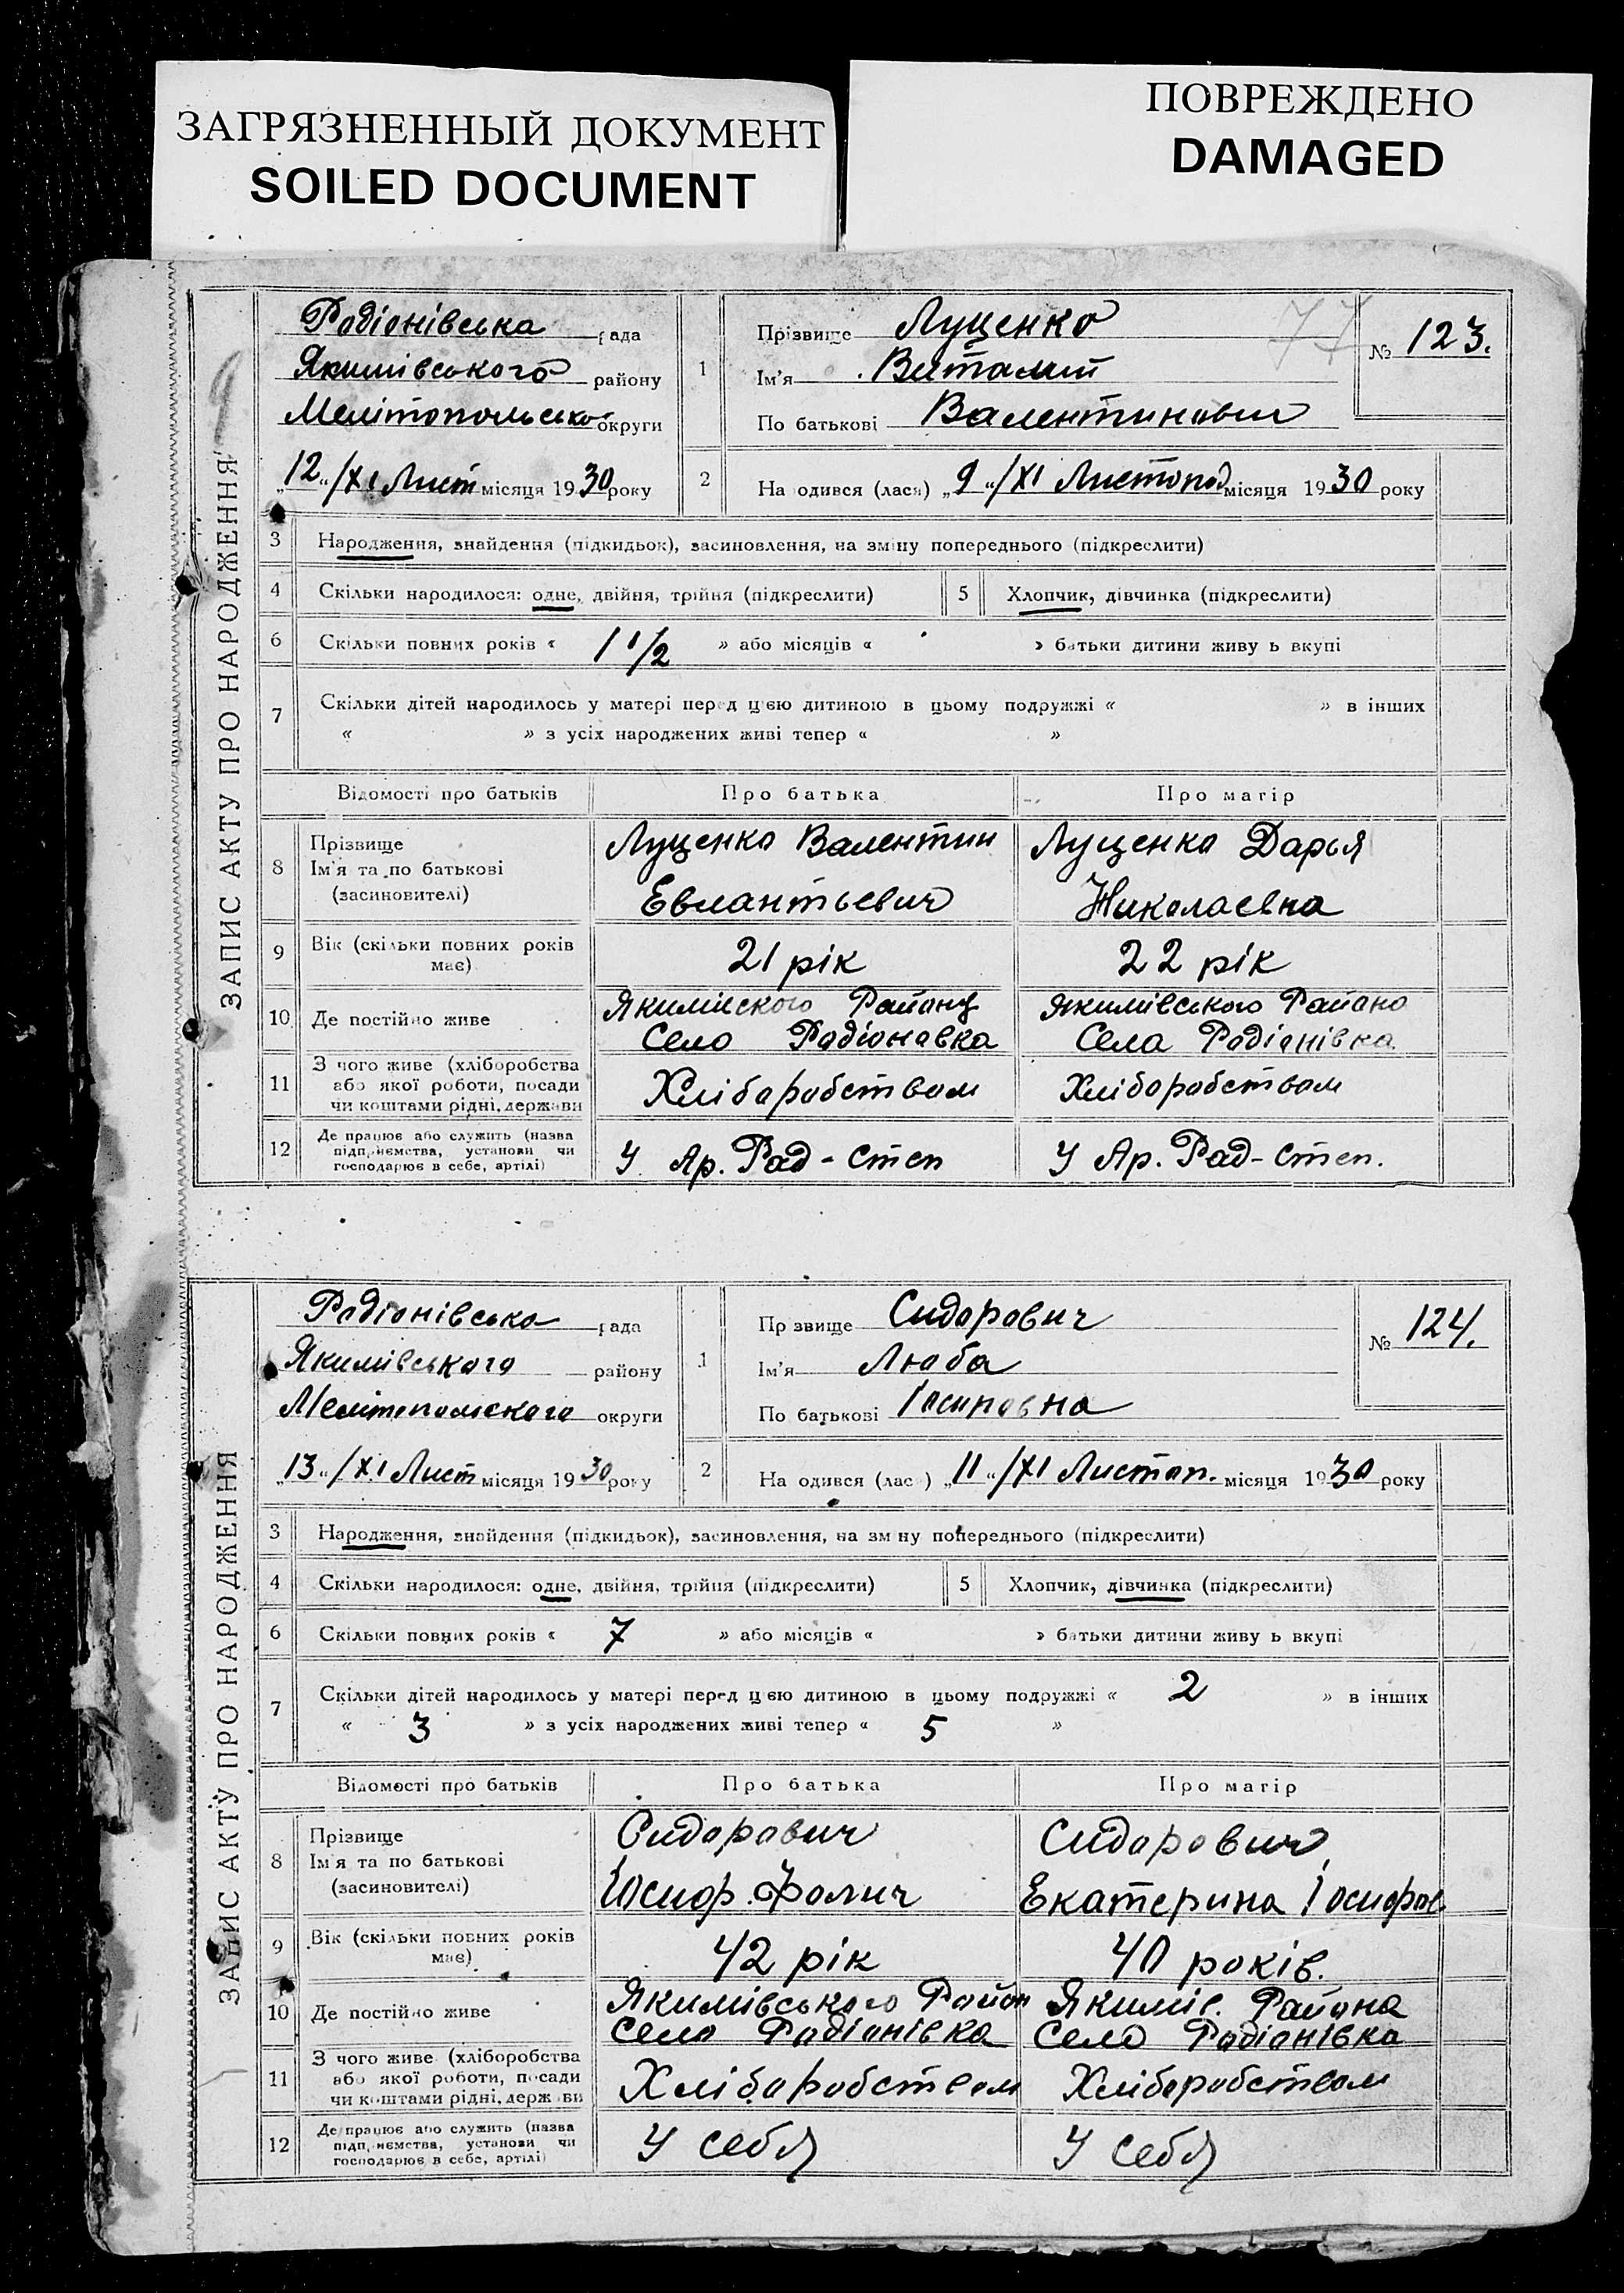 ЗАГРЯЗНЕННЫЙ ДОКУМЕНТ
SOILED DOCUMENT
ПОВРЕЖДЕНО
DAMAGED
ЗАПИС АКТУ ПРО НАРОДЖЕННЯ
77
Радіонівська рада
Якимівського району
Мелітопольсько округи
„12“/XI Лист місяця 1930 року
1 Прізвище Луценко
Ім'я Виталий
По батькові Валентинович
№ 123.
2 Народився (лася) „9“/XI Листопад місяця 1930 року
3 Народження, знайдення (підкидьок), засиновлення, на зміну попереднього (підкреслити)
4 Скільки народилося: одне, двійня, трійня (підкреслити) 5 Хлопчик, дівчинка (підкреслити)
6 Скільки повних років « 1 1/2 » або місяців « » батьки дитини живуть вкупі
7 Скільки дітей народилось у матері перед цією дитиною в цьому подружжі « » в інших
« » з усіх народжених живі тепер « »
Відомості про батьків Про батька Про матір
8 Прізвище
Ім'я та по батькові
(засиновителі)
Луценко Валентин
Евлантьевич
Луценко Дарья
Николаевна
9 Вік (скільки повних років
має)
21 рік
22 рік
10 Де постійно живе
Якимиского Району
Село Радіоновка
Якимівського Районо
Села Радіонівка
11 З чого живе (хліборобства
або якої роботи, посади
чи коштами рідні, держави
Хліборобством
Хліборобством
12 Де працює або служить (назва
підприємства, установи чи
господарює в себе, артілі)
У Ар. Рад-Степ
У Ар. Рад-Степ.
ЗАПИС АКТУ ПРО НАРОДЖЕННЯ
Радіонівсько рада
Якимівського району
Мелітопольского округи
„13“/XI Лист місяця 1930 року
1 Прізвище Сидорович
Ім'я Люба
По батькові Іосиповна
№ 124.
2 Народився (лася) „11“/XI Листоп. місяця 1930 року
3 Народження, знайдення (підкидьок), засиновлення, на зміну попереднього (підкреслити)
4 Скільки народилося: одне, двійня, трійня (підкреслити) 5 Хлопчик, дівчинка (підкреслити)
6 Скільки повних років « 7 » або місяців « » батьки дитини живуть вкупі
7 Скільки дітей народилось у матері перед цією дитиною в цьому подружжі « 2 » в інших
« 3 » з усіх народжених живі тепер « 5 »
Відомості про батьків Про батька Про матір
8 Прізвище
Ім'я та по батькові
(засиновителі)
Сидорович
Йосиф Фомич
Сидорович
Екатерина Іосифов
9 Вік (скільки повних років
має)
42 рік
40 років.
10 Де постійно живе
Якимівського Район
село Радіонівка
Якимів. Района
Село Радіонівка
11 З чого живе (хліборобства
або якої роботи, посади
чи коштами рідні, держави
Хліборобством
Хліборобством
12 Де працює або служить (назва
підприємства, установи чи
господарює в себе, артілі)
У себя
У себя